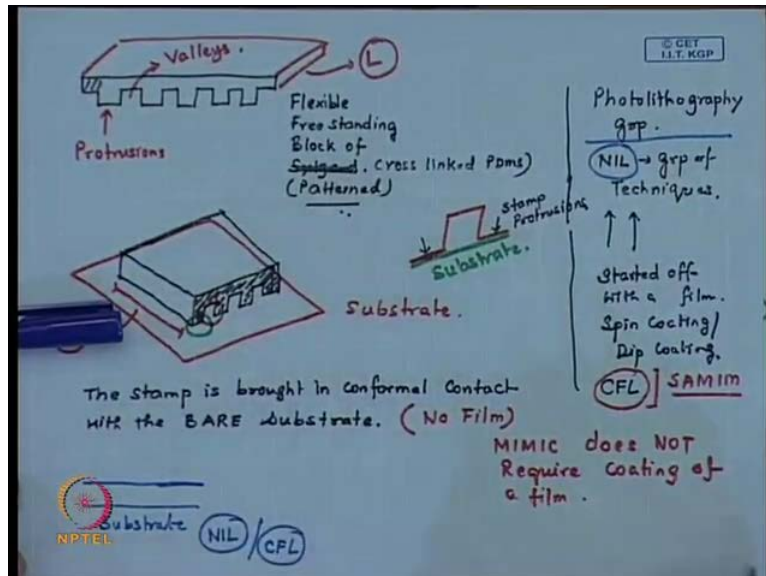 © CET
I.I.T. KGP
Valleys.
L
Protrusions
Flexible
Free standing
Block of
Cross linked PDMS)
(Patterned)
Stamp
Protrusions
Substrate.
Substrate.
The stamp is brought in conformal contact
with the BARE Substrate. (No Film)
Substrate
NIL / CFL
NPTEL
Photolithography
grp.
NIL → grp of
Techniques.
Started off
with a film.
Spin Coating/
Dip Coating.
CFL ] SAMIM
MIMIC does NOT
Require Coating of
a film.